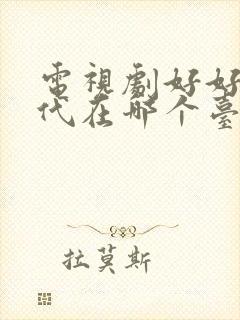 電視劇好好
代在哪个臺
拉莫斯